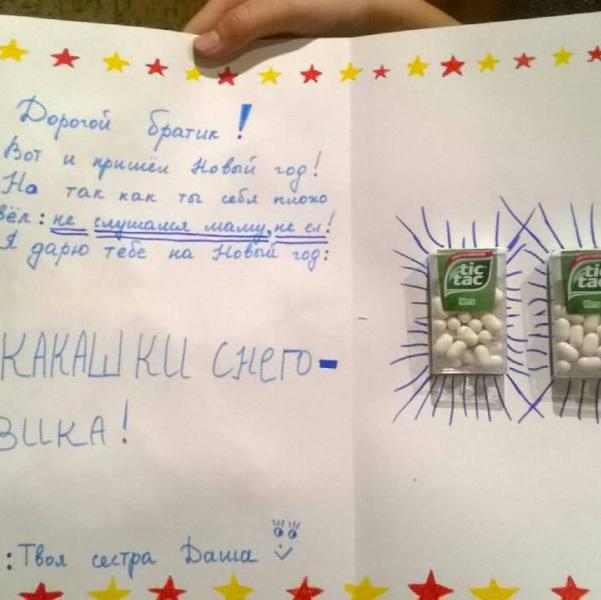 Дорогой братик!
Вот и пришёл Новый год!
Но так как ты себя плохо
вёл: не слушался маму, не ел!
Я дарю тебе на Новый год:
КАКАШКИ СНЕГО-
ВИКА!
: Твоя сестра Даша
tic
tac
tic
tac